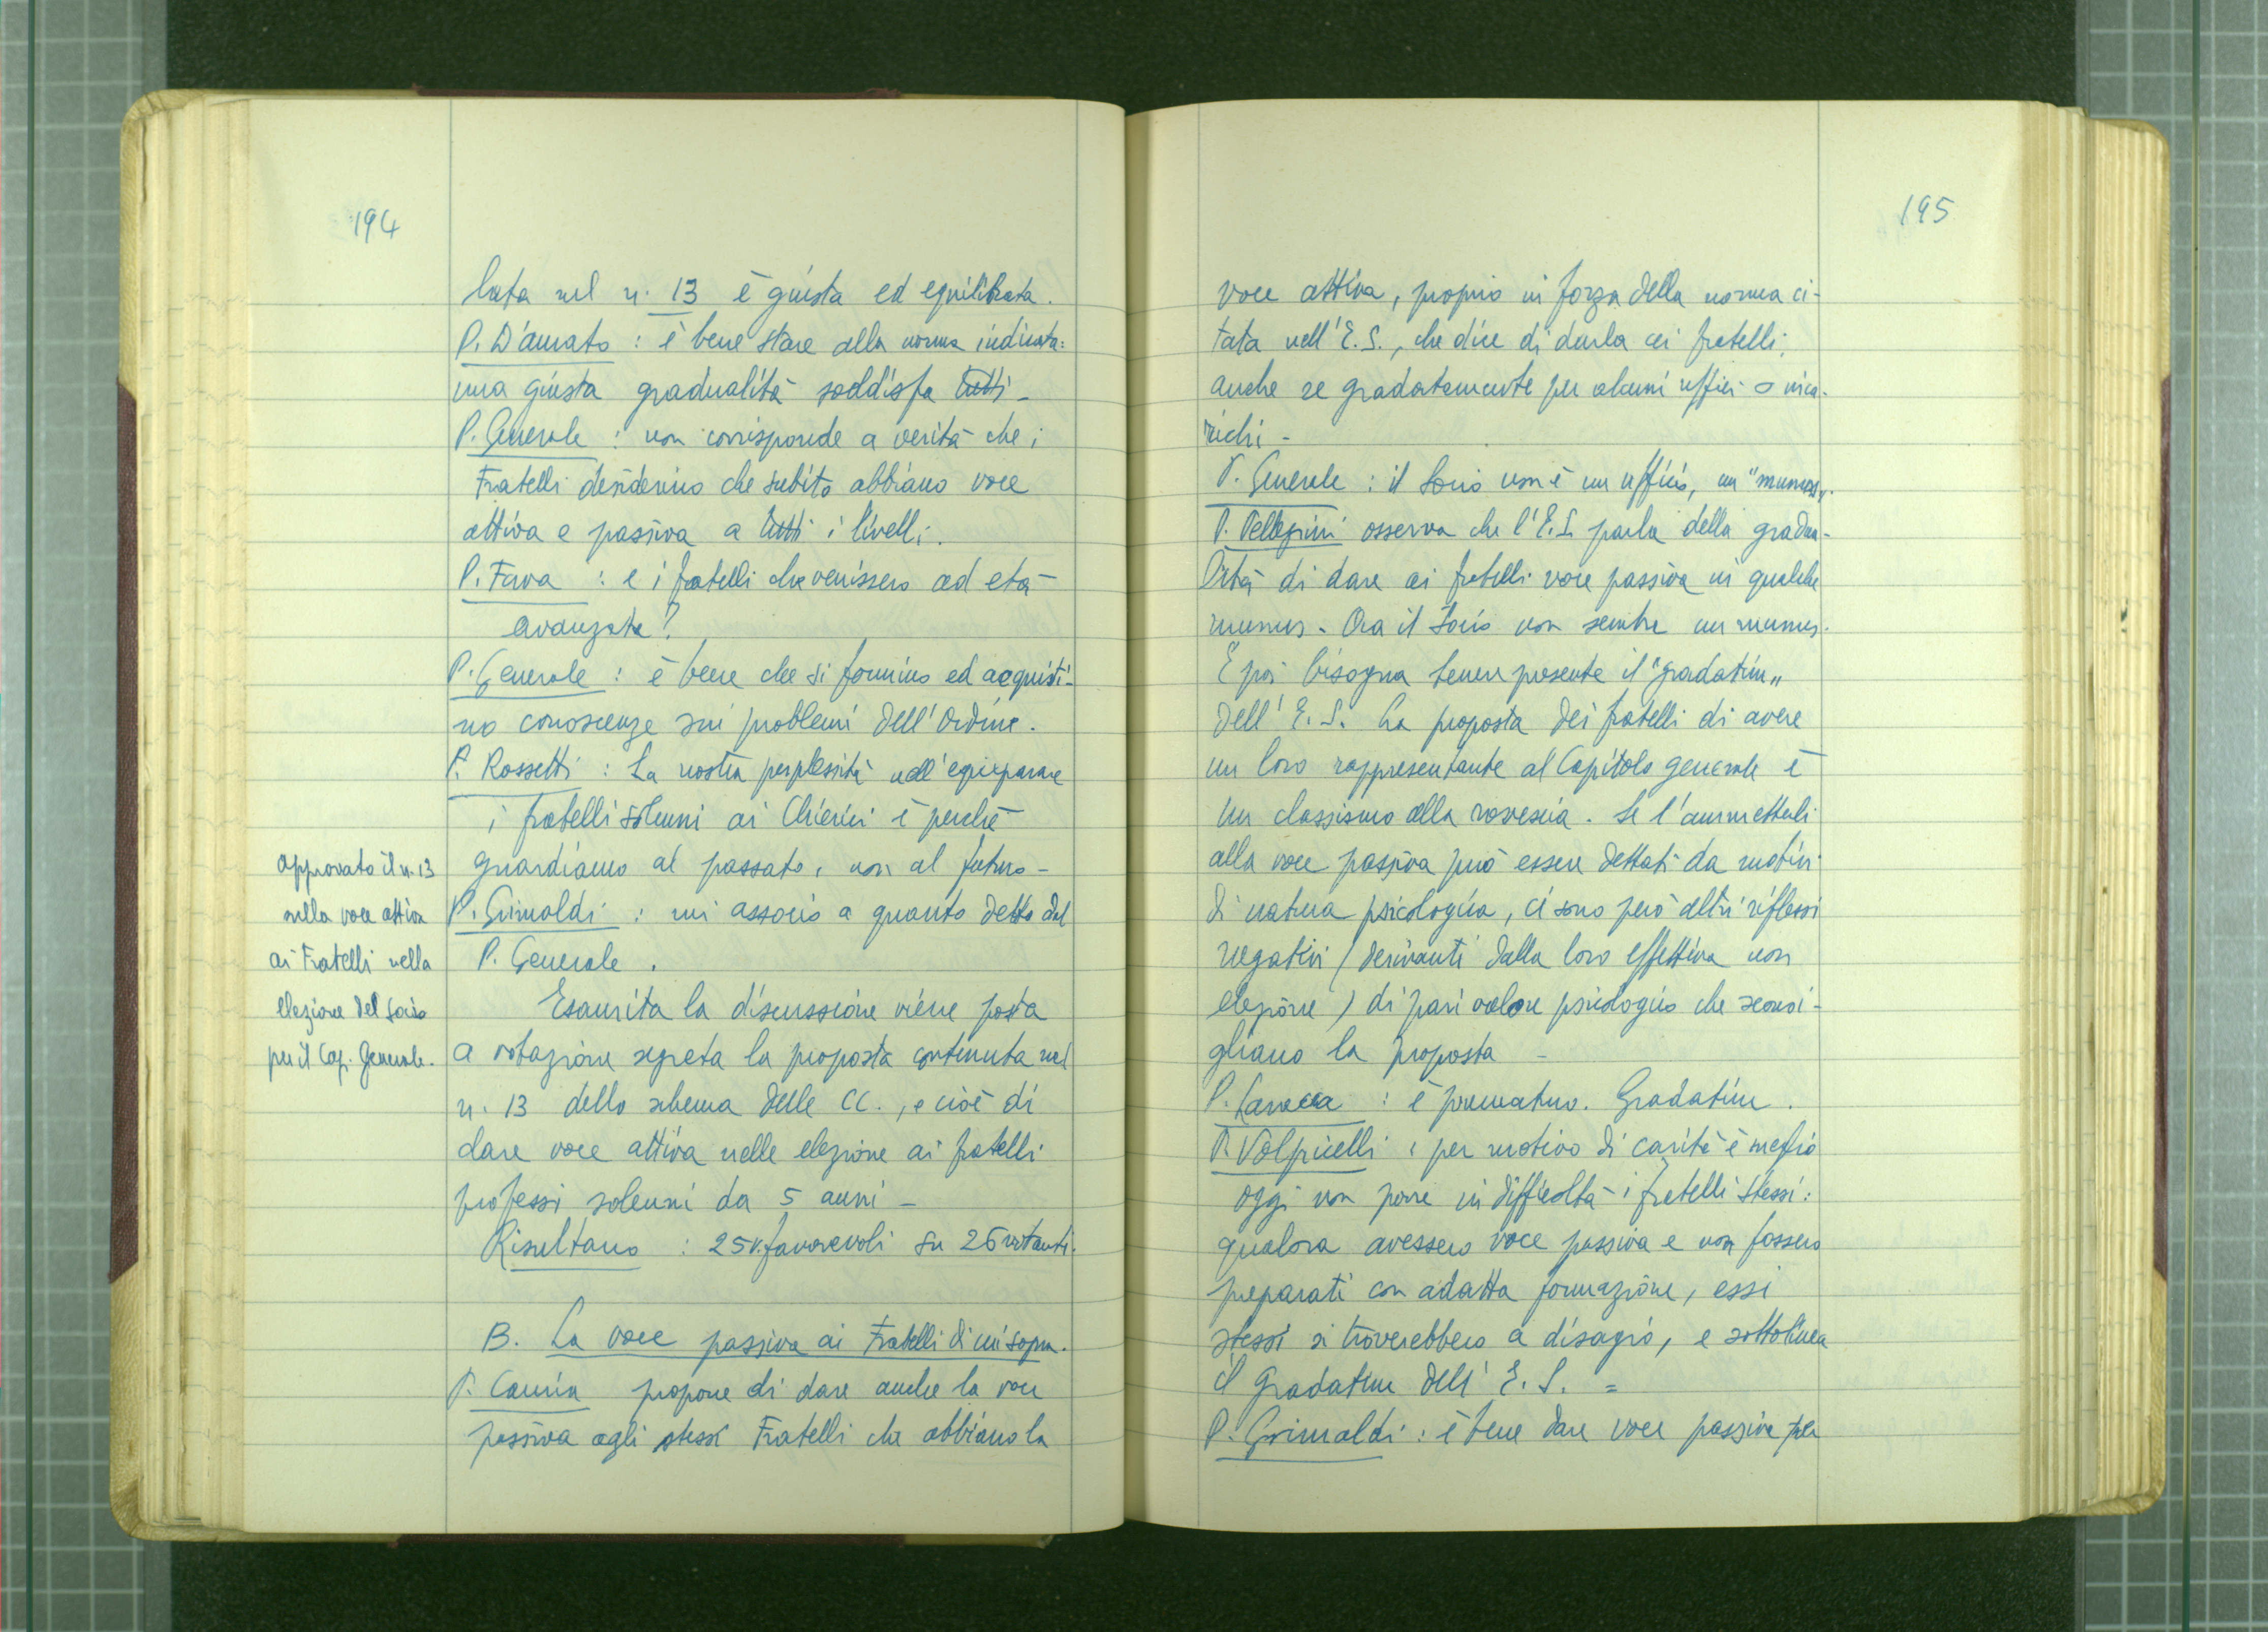 194
lata nel n. 13 è giusta ed equilibrata.
P. D'Amato : è bene stare alla norma indicata:
una giusta gradualità soddisfa tutti -
P. Generale : non corrisponde a verità che i
Fratelli desiderino che subito abbiano voce
attiva e passiva a tutti i livelli.
P. Fava : e i fratelli che venissero ad età
avanzata?
P. Generale : è bene che si formino ed acquisti-
no conoscenze sui problemi dell'Ordine.
P. Rossetti : La nostra perplessità nell'equiparare
i fratelli solenni ai Chierici è perchè
guardiamo al passato, non al futuro -
P. Grimaldi : mi associo a quanto detto dal
P. Generale .
approvato il n. 13
sulla voce attiva
ai Fratelli nella
elezione del Socio
per il Cap. Generale.
Esaurita la discussione viene posta
a votazione segreta la proposta contenuta nel
n. 13 dello schema delle CC., e cioè di
dare voce attiva nelle elezione ai fratelli
professi solenni da 5 anni -
Risultano : 25 v. favorevoli su 26 votanti.
B. La voce passiva ai Fratelli di cui sopra.
P. propone di dare anche la voce
passiva agli stessi Fratelli che abbiano la
195
voce attiva, proprio in forza della norma ci-
tata nell'E. S., che dice di darla ai fratelli,
anche se gradatamente per alcuni uffici o inca-
richi -
P. Generale : il Socio non è un ufficio, un "munus".
P. Pellegrini osserva che l'E.S. parla della gradua-
lità di dare ai fratelli voce passiva in qualche
munus. Ora il Socio non sembra un munus.
E poi bisogna tener presente il "gradatim"
dell'E. S. La proposta dei fratelli di avere
un loro rappresentante al Capitolo generale è
un classismo alla rovescia. Se l'ammetterli
alla voce passiva può essere dettati da motivi
di natura psicologica, ci sono però altri riflessi
negativi (derivanti dalla loro effettiva non
elezione) di pari valore psicologico che sconsi-
gliano la proposta -
P. Larocca : è prematuro. Gradatim.
P. Volpicelli : per motivo di carità è meglio
oggi non porre in difficoltà i fratelli stessi:
qualora avessero voce passiva e non fossero
preparati con adatta formazione, essi
stessi si troverebbero a disagio, e sottolinea
il gradatim dell'E. S. =
P. Grimaldi : è bene dare voce passiva per